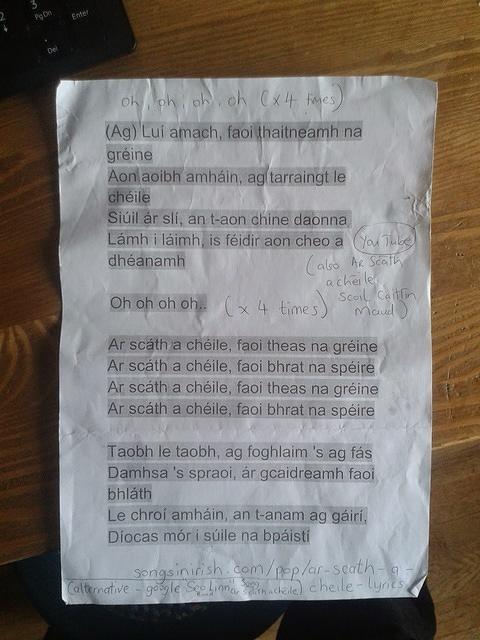 2
3
PgDn
Enter
Del
oh, oh, oh, oh (x 4 times)
(Ag) Luí amach, faoi thaitneamh na
gréine
Aon aoibh amháin, ag tarraingt le
chéile
Siúil ár slí, an t-aon chine daonna
Lámh i láimh, is féidir aon cheo a
dhéanamh
YouTube
(also Ar Scáth
a chéile
Scoil Caitlín
Maud)
Oh oh oh oh.. (x 4 times)
Ar scáth a chéile, faoi theas na gréine
Ar scáth a chéile, faoi bhrat na spéire
Ar scáth a chéile, faoi theas na gréine
Ar scáth a chéile, faoi bhrat na spéire
Taobh le taobh, ag foghlaim 's ag fás
Damhsa 's spraoi, ár gcaidreamh faoi
bhláth
Le chroí amháin, an t-anam ag gáirí,
Díocas mór i súile na bpáistí
songsinirish.com/pop/ar-scath-a-
(alternative - google Seo Linn ar scáth a chéile) cheile-lyrics